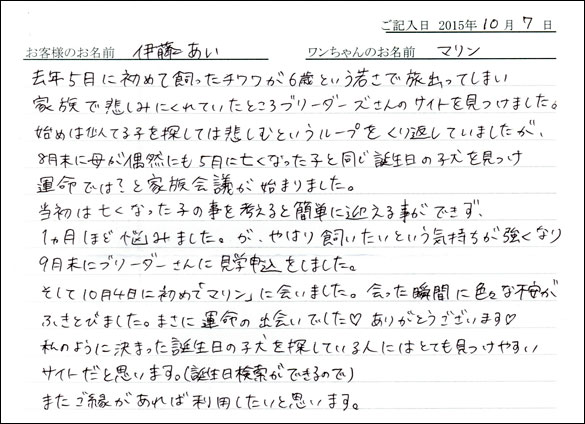 ご記入日 2015年 10月 7日
お客様のお名前 伊藤 あい ワンちゃんのお名前 マリン
去年5月に初めて飼ったチワワが6歳という若さで旅出ってしまい
家族で悲しみにくれていたところブリーダーズさんのサイトを見つけました。
始めは似てる子を探しては悲しむというループをくり返していましたが、
8月末に母が偶然にも5月に亡くなった子と同じ誕生日の子犬を見つけ
運命では?と家族会議が始まりました。
当初は亡くなった子の事を考えると簡単に迎える事ができず、
1ヵ月ほど悩みました。が、やはり飼いたいという気持ちが強くなり
9月末にブリーダーさんに見学申込をしました。
そして10月4日に初めて「マリン」に会いました。会った瞬間に色々な不安が
ふきとびました。まさに運命の出会いでした♡ ありがとうございます♡
私のように決まった誕生日の子犬を探している人にはとても見つけやすい
サイトだと思います。(誕生日検索ができるので)
またご縁があれば利用したいと思います。